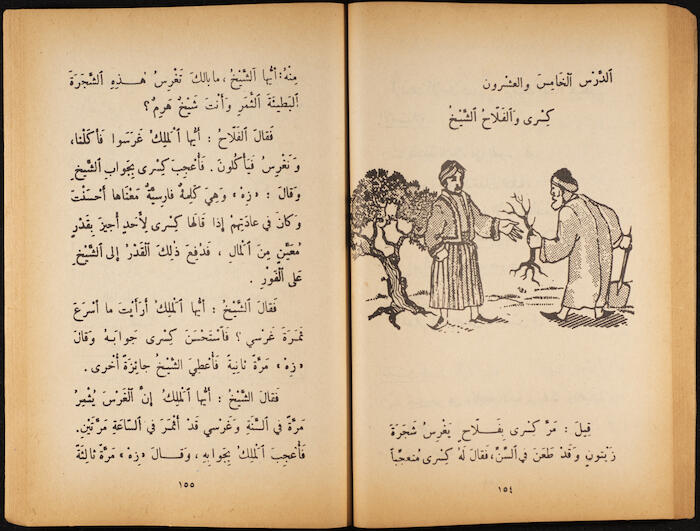 الدَّرْس الخَامِسَ والعِشْرون
كِسْرى وَالفَلاَّحُ الشَّيْخُ
قِيلَ : مَرَّ كِسْرى بِفَلاَّحٍ يَغْرِسُ شَجَرَةَ
زَيْتونٍ وَقَدْ طَعَنَ في السِّنِّ، فَقالَ لَهُ كِسْرى مُتعجِّباً
١٥٤
مِنْهُ: أيُّها الشَّيْخُ ، ما بالكَ تَغْرِسُ هٰذِهِ الشَّجَرَةَ
البَطيئَةَ الثَّمَرِ وَأنْتَ شَيْخٌ هَرِمٌ ؟
فَقالَ الفَلاَّحُ : أيُّها الْمَلِكُ غَرَسوا فَأكَلْنا،
وَنَغْرِسُ فَيَأكُلونَ . فَأُعْجِبَ كِسْرى بِجَوابِ الشَّيْخِ
وَقالَ : «زِهْ» وَهِيَ كَلِمَةٌ فارِسِيَّةٌ مَعْناها أحْسَنْتَ
وَكانَ في عادَتِهِمْ إذا قالَها كِسْرى لِأحَدٍ أُجيزَ بِقَدْرٍ
مُعَيَّنٍ مِنَ الْمالِ ، فَدُفِعَ ذٰلِكَ القَدْرُ إلى الشَّيْخِ
عَلى الْفَوْرِ .
فَقالَ الشَّيْخُ : أيُّها الْمَلِكُ أرَأيْتَ ما أسْرَعَ
ثَمَرَةَ غَرْسي ؟ فَاسْتَحْسَنَ كِسْرى جَوابَهُ وَقالَ
«زِهْ» مَرَّةً ثانِيَةً فَأُعْطِيَ الشَّيْخُ جائِزَةً أُخْرى .
فَقالَ الشَّيْخُ : أيُّها الْمَلِكُ إنَّ الغَرْسَ يُثْمِرُ
مَرَّةً في السَّنَةِ وَغَرْسي قَدْ أثْمَرَ في السَّاعَةِ مَرَّتَيْنِ.
فَأُعْجِبَ الْمَلِكُ بِجَوابِهِ ، وَقـالَ «زِهْ» مَرَّةً ثالِثَةً
١٥٥